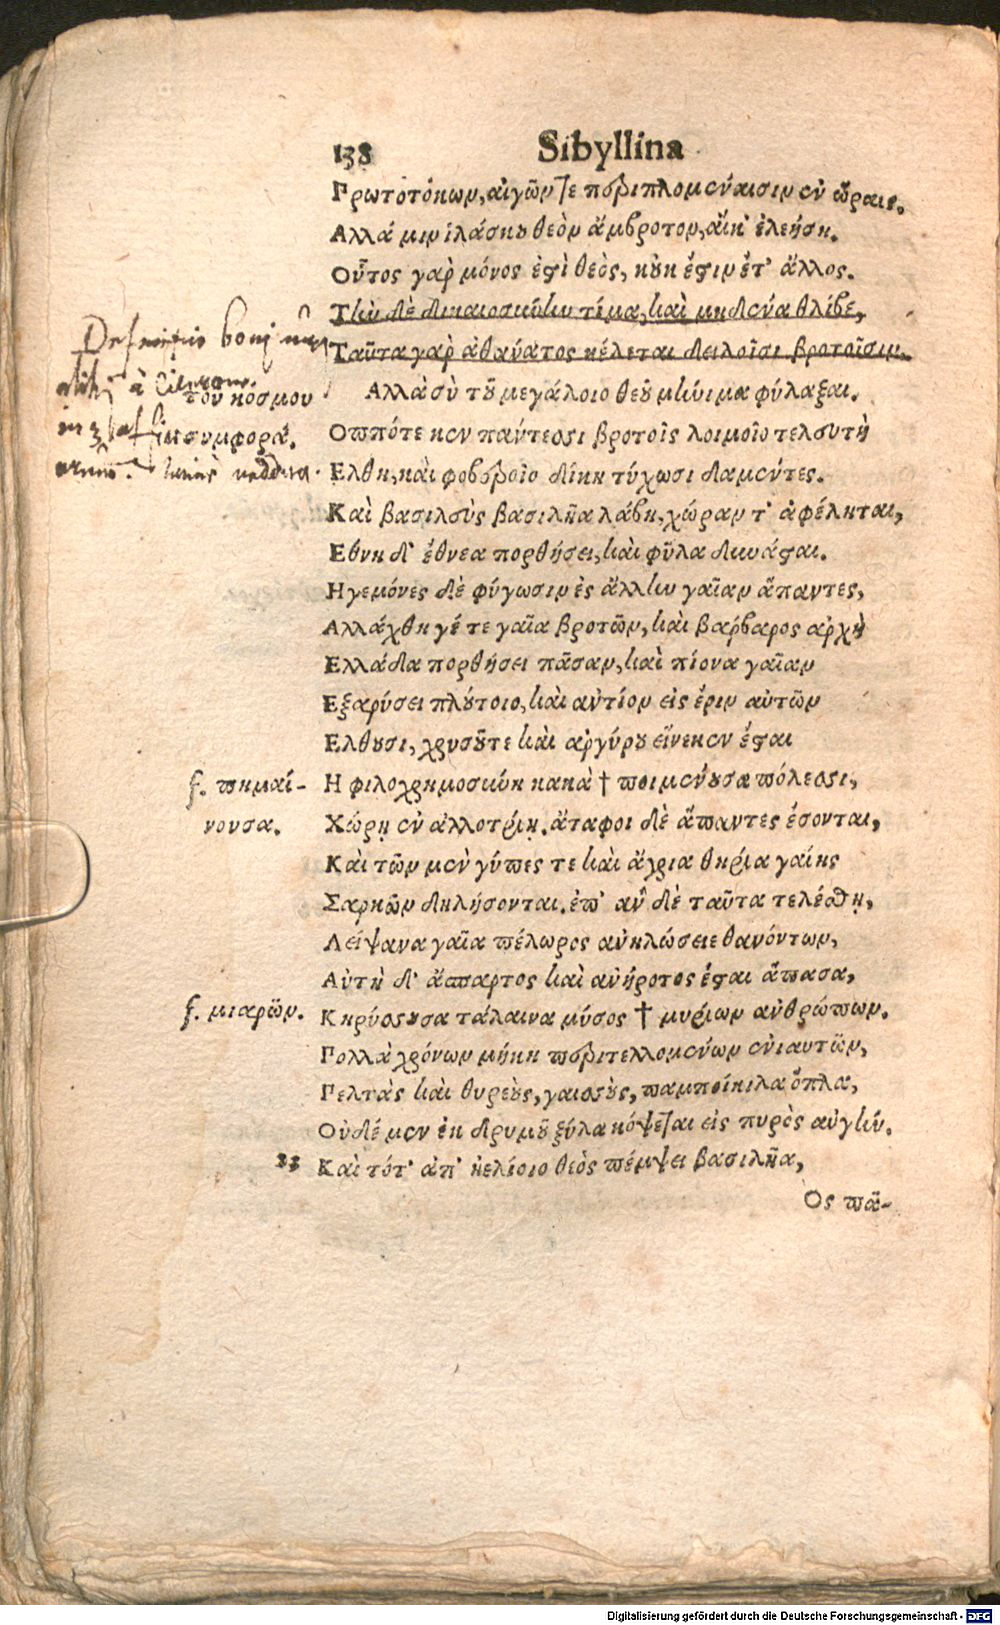 138 Sibyllina
Πρωτοτόκων, αἰγῶν τε περιπλομέναισιν ἐν ὥραις.
Αλλά μιν ἱλάσκου θεὸν ἄμβροτον, αἴκ' ἐλεήσῃ.
Οὗτος γὰρ μόνος ἐστὶ θεὸς, κοὐκ ἔστιν ἔτ' ἄλλος.
Τὴν δὲ δικαιοσύνην τίμα, καὶ μηδένα θλίβε,
Ταῦτα γὰρ ἀθάνατος κέλεται δειλοῖσι βροτοῖσιν.
Definitio boni
à Cicerone
in 3
τοῦ κόσμου
συμφορά.
Αλλὰ σὺ τοῦ μεγάλοιο θεοῦ μήνιμα φύλαξαι.
Οππότε κεν πάντεσσι βροτοῖς λοιμοῖο τελευτὴ
Ελθη, καὶ φοβεροῖο δίκη τύχωσι δαμέντες.
Καὶ βασιλεὺς βασιλῆα λάβη, χώραν τ' ἀφέληται,
Εθνη δ' ἔθνεα πορθήσει, καὶ φῦλα δυνάσται.
Ηγεμόνες δὲ φύγωσιν ἐς ἄλλην γαῖαν ἅπαντες,
Αλλάχθη γέ τε γαῖα βροτῶν, καὶ βάρβαρος ἀρχὴ
Ελλάδα πορθήσει πᾶσαν, καὶ πίονα γαῖαν
Εξαρύσει πλούτοιο, καὶ ἀντίον εἰς ἔριν αὐτῶν
Ελθουσι, χρυσοῦ τε καὶ ἀργύρου εἵνεκεν ἔσται
f. πημαί-
νουσα.
Η φιλοχρημοσύνη κακὰ † ποιμένουσα πόλεσσι,
Χώρῃ ἐν ἀλλοτρίῃ. ἄταφοι δὲ ἅπαντες ἔσονται,
Καὶ τῶν μὲν γύπες τε καὶ ἄγρια θηρία γαίης
Σαρκῶν δηλήσονται. ἐπ' ἂν δὲ ταῦτα τελέσθῃ,
Λείψανα γαῖα πέλωρος ἀνκλώσειε θανόντων,
Αὐτὴ δ' ἄσπαρτος καὶ ἀνήροτος ἔσται ἅπασα,
f. μιαρῶν.
Κηρύσσουσα τάλαινα μύσος † μυρίων ἀνθρώπων.
Πολλὰ χρόνων μήκη περιτελλομένων ἐνιαυτῶν,
Πελτὰς καὶ θυρεοὺς, γαισοὺς, παμποίκιλα ὅπλα,
Οὐδέ μεν ἐκ δρυμοῦ ξύλα κόψεται εἰς πυρὸς αὐγήν.
33 Καὶ τότ' ἀπ' ἠελίοιο θεὸς πέμψει βασιλῆα,
Ὃς πᾶ-
Digitalisierung gefördert durch die Deutsche Forschungsgemeinschaft - DFG